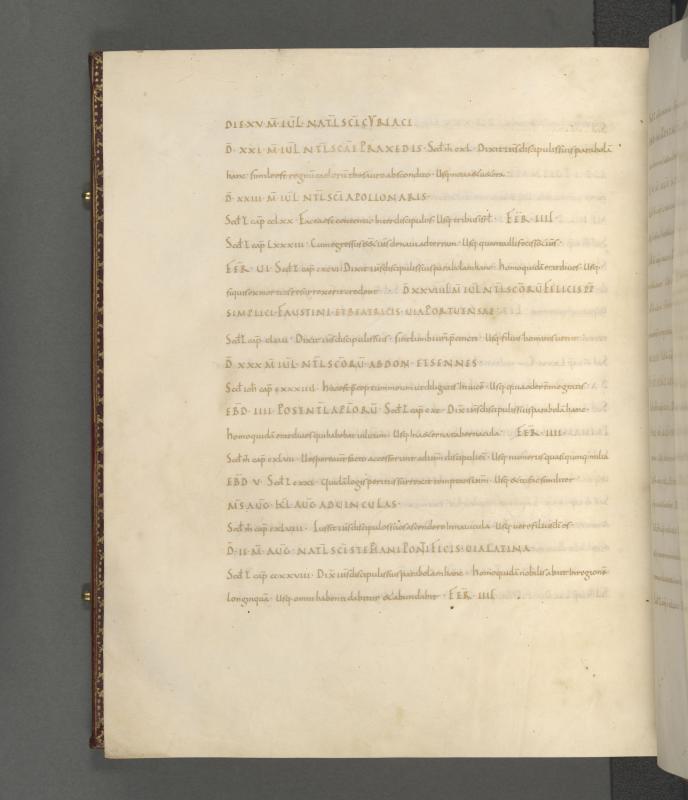 DIE XV M̄ IUL̄ NATL̄ SCĪ CYRIACI
D̄ XXI M̄ IUL̄ NTL̄ SCAĒ PRAXEDIS Scd̄ m̄ cxl Dixit ih̄s discipulis suis parabolā
hanc simile est regnū caelorū thesauro abscondito Usq̄ nova et vetera
D̄ XXIII M̄ IUL̄ NTL̄ SCĪ APOLLONARIS
Scd̄ L cap̄ cclxx Facta est contentio inter discipulos Usq̄ tribus isrl̄
FER̄ IIII
Scd̄ L cap̄ LXXXIII Cum egressus ih̄s de navi ad terram Usq̄ quanta illi fecisset ih̄s
FER̄ UI Scd̄ L cap̄ cxcvi Dixit ih̄s discipulis suis parabolam hanc homo quidā erat dives Usq̄
si quis ex mortuis resurrexerit credent D̄ XXVIIII M̄ IUL̄ NTL̄ SCŌRŪ FELICIS PP̄
SIMPLICI FAUSTINI ET BEATRICIS UIA PORTUENSAE
Scd̄ L cap̄ clvii Dixit ih̄s discipulis suis sint lumbi vr̄i praecincti Usq̄ filius hominis veniet
D̄ XXX M̄ IUL̄ NTL̄ SCŌRŪ ABDON ET SENNES
Scd̄ ioh̄ cap̄ cxxxviiii Haec est praeceptum meum ut diligatis invicē Usq̄
EBD̄ IIII POST NTL̄ APLŌRŪ Scd̄ L cap̄ cxc Dix̄ ih̄s discipulis suis parabolā hanc
homo quidā erat dives qui habebat vilicum Usq̄ in aeterna tabernacula FER̄ IIII
Scd̄ m̄ cap̄ cxlvii Vespere autē facto accesserunt ad eum discipuli eius Usq̄ numerus quasi quinq̄ milia
EBD̄ V Scd̄ L cxxi Quidā legis peritus surrexit temptans ih̄m Usq̄ et tu fac similiter
M̄S AUḠ KL̄ AUḠ AD UINCULAS
Scd̄ m̄ cap̄ cxlviii Iussit ih̄s discipulos suos ascendere in navicula Usq̄ vere filius dī es
D̄ II M̄ AUḠ NATL̄ SCĪ STEPHANI PONTIFICIS UIA LATINA
Scd̄ L cap̄ ccxxviii Dix̄ ih̄s discipulis suis parabolam hanc homo quidā nobilis abiit in regionē
longinquā Usq̄ omni habenti dabitur et abundabit FER̄ IIII